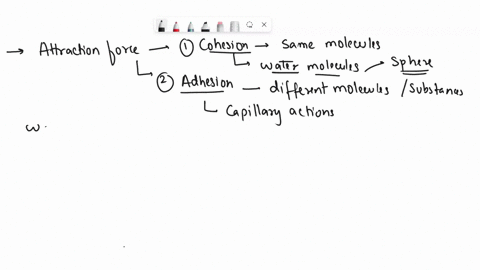 → Attraction force → ① Cohesion → same molecules
water molecules / Sphere
② Adhesion — different molecules / Substances
Capillary actions
w.